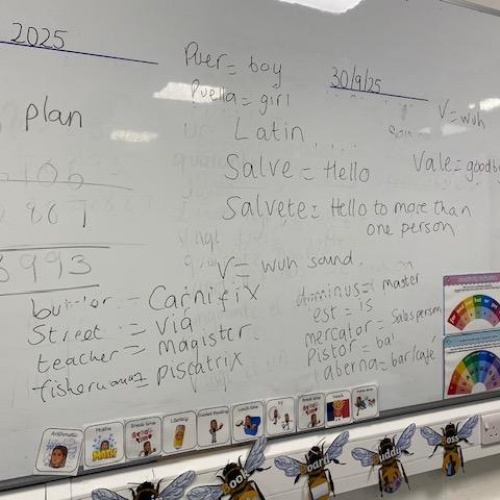 2025
plan
6993
Puer = boy
Puella = girl
Latin ....
Salve = Hello
Salvete = Hello to more than
one person
V = wuh sound.
30/9/25
V = wuh
Vale = goodb
Carnifix
Street = via
teacher = magister
= Piscatrix
master
est = is
mercator = Salesperson
Pistor = ba
aberna = bar/café